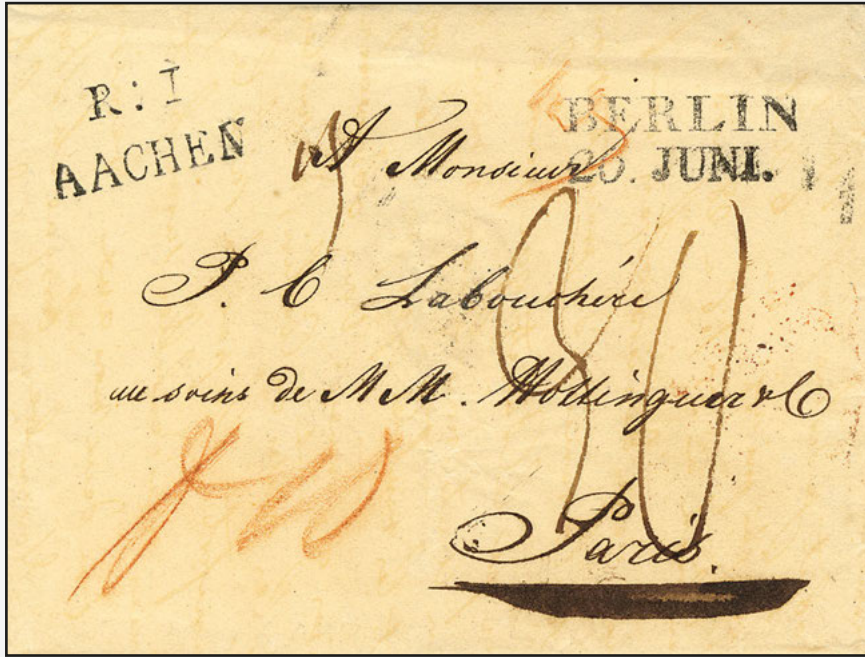 R: I
AACHEN
BERLIN
JUNI.
A Monsieur
P. C Labouchére
au soins de M M. Hottinguer & C
Paris.